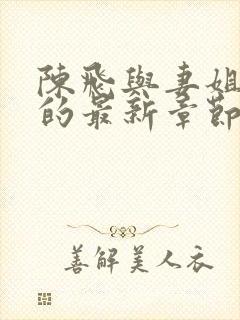 陳飛與妻姐
的最新章節
善解美人衣